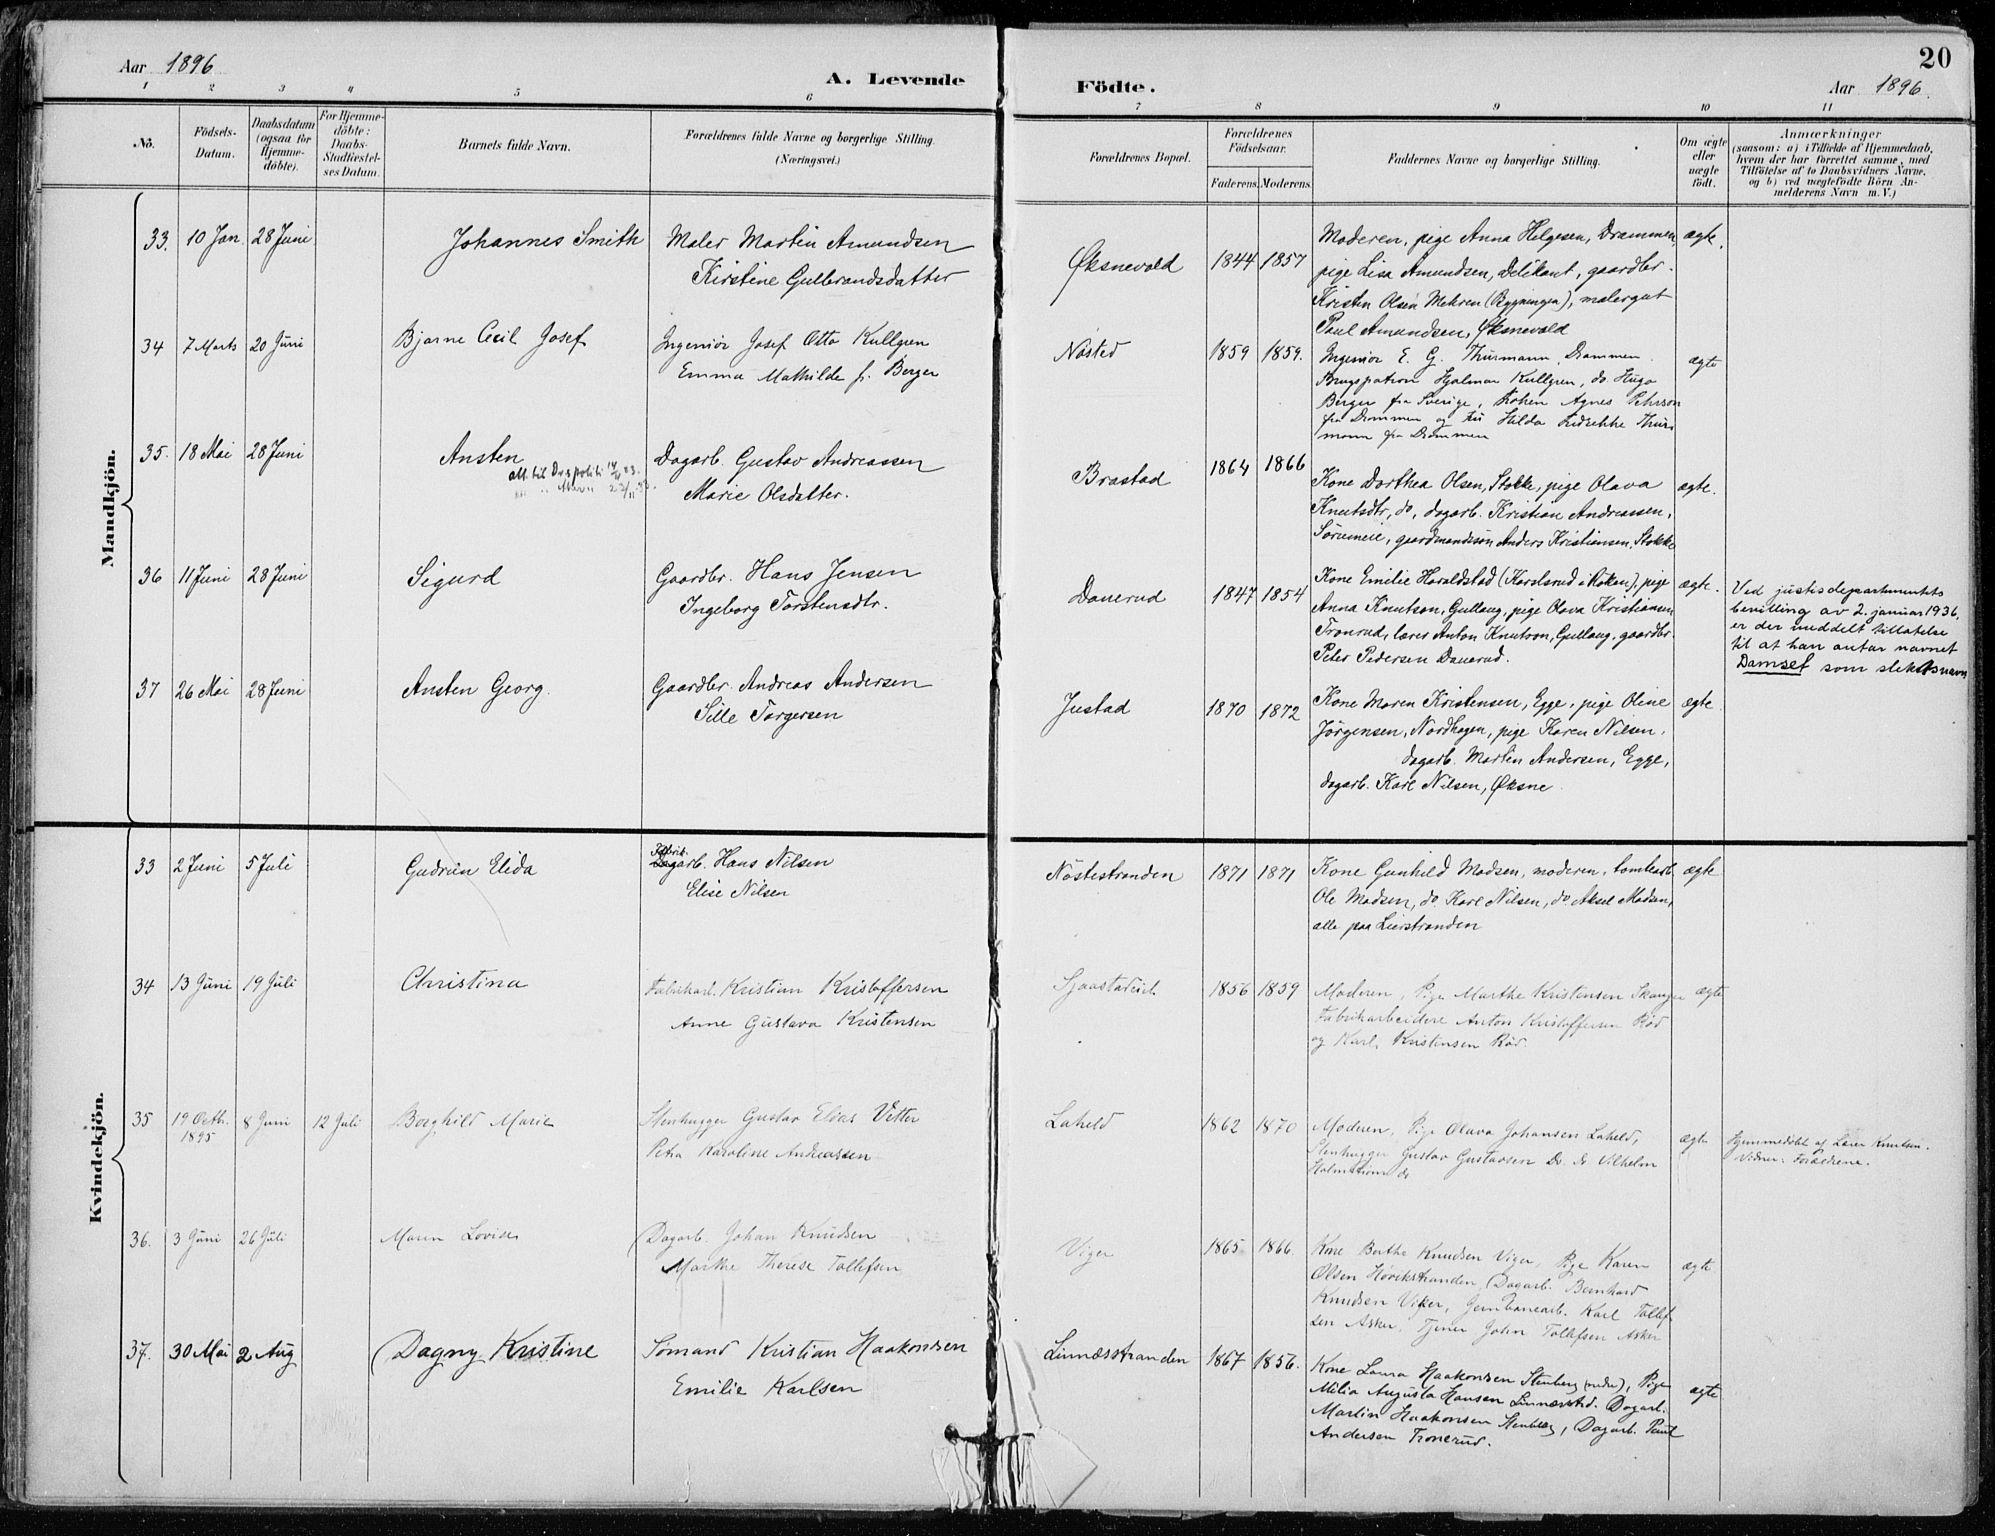 Aar 1896
A. Levende Födte.
Aar 1896.
20
1 2 3 4 5 6 7 8 9 10 11
No.
Födsels-Datum.
Daabsdatum (ogsaa for Hjemmedöbte).
For Hjemmedöbte: Daabs-Stadfæstelses Datum.
Barnets fulde Navn.
Forældrenes fulde Navne og borgerlige Stilling. (Næringsvei.)
Forældrenes Bopæl.
Forældrenes Födselsaar.
Faderens. Moderens.
Faddernes Navne og borgerlige Stilling.
Om ægte eller uægte født.
Anmærkninger
(saasom: a) i Tilfælde af Hjemmedaab,
hvem der har forrettet samme, med
Tilföielse af to Daabsvidners Navne.
og b) ved uægtefödte Börn An-
melderens Navn m. V.)
Mandkjön.
33. 10 Jan. 28 Juni
Johannes Smith
Maler Martin Amundsen
Kirstine Gulbrandsdatter
Øksnevold
1844 1857
Moderen, pige Anna Helgesen, Drammen,
pige Lisa Amundsen, Delikant, gaardbr.
Kristen Olsen Mehren (Bygningen), malergut
Paul Amundsen, Øksnevold
ægte.
34 7 Marts 20 Juni
Bjarne Cecil Josef
Ingeniør Josef Otto Kullgren
Emma Mathilde f. Berger
Nøsted
1859 1859.
Ingeniør E. G. Thurmann, Drammen.
Brugspatron Hjalmar Kullgren, do. Hugo
Berger fra Sverige, Frøken Agnes Pehrson
fra Drammen og Hilda Fredrikke Thur-
mann fra Drammen
ægte
35. 18 Mai 28 Juni
Ansten
Att. til Dr. politi
Dagarb. Gustav Andreassen
Marie Olsdatter.
Brastad
1864 1866
Kone Dorthea Olsen, Stokke, pige Olava
Knutsdtr, do, dagarb. Kristian Andreassen,
Sørumeie, gaardmandssøn Anders Kristiansen, Stokke
ægte.
36 11 Juni 28 Juni
Sigurd
Gaardbr. Hans Jensen
Ingeborg Torstensdtr.
Danerud
1847 1854
Kone Emilie Haraldstad (Karlsrud i Røken), pige
Anna Knutson, Gullaug, pige Olava Kristiansen
Tronrud, lærer Anton Knutson, Gullaug, gaardbr.
Peter Pedersen Danerud.
ægte.
Ved justisdepartementets
bevilling av 2. januar 1936,
er der meddelt tillatelse
til at han antar navnet
Damsef som slektsnavn
37 26 Mai 28 Juni
Ansten Georg.
Gaardbr. Andreas Andersen
Sille Torgersen
Justad
1870 1872
Kone Maren Kristensen, Egge, pige Oline
Jörgensen, Nordhagen, pige Karen Nilsen.
dagarb. Martin Andersen, Egge,
dagarb. Karl Nilsen, Øksne
ægte
Kvindekjön.
33 2 Juni 5 Juli
Gudrun Elida
Fabrik.
Dagarb. Hans Nilsen
Elise Nilsen
Nöstestranden
1871 1871
Kone Gunhild Madsen, moderen, tomtearb.
Ole Madsen, do. Karl Nilsen, do Aksel Madsen,
alle paa Lierstranden
ægte
34 13 Juni 19 Juli
Christina
Fabrikarb. Kristian Kristoffersen
Anne Gustava Kristensen
1856 1859
Moderen, Pige Marthe Kristensen Skauger
Fabrikarbeidere Anton Kristoffersen Rød
og Karl Kristensen Rød.
ægte
35 19 Octb. 1895 8 Juni 12 Juli
Borghild Marie
Stenhugger Gustav Elias Vetter
Petra Karoline Andreassen
Laheld
1862 1870
Moderen, Pige Olava Johansen Laheld,
Stenhugger Gustav Gustavsen Do. do Vilhelm
Holmstrøm do
ægte
Hjemmedøbt af Lærer Knutsen.
Vidner: Forældrene.
36. 3 Juni 26 Juli
Maren Lovise
Dagarb. Johan Knudsen
Marthe Therese Tollefsen
Viger
1865 1866.
Kone Berthe Knudsen Viger, Pige Karen
Olsen Høvikstranden, Dagarb. Bernhard
Knudsen Viker, Jernbanearb. Karl Tollef-
sen Asker, Tjener John Tollefsen Asker
ægte
37. 30 Mai 2 Aug
Dagny Kristine
Sömand Kristian Haakonsen
Emilie Karlsen
Linnæsstranden
1867 1856.
Kone Laura Haakonsen Stenberg (nedre), Pige
Milia Augusta Hansen Linnæsstrd. Dagarb.
Martin Haakonsen Stenberg, Dagarb. Paul
Andersen Tronerud.
ægte